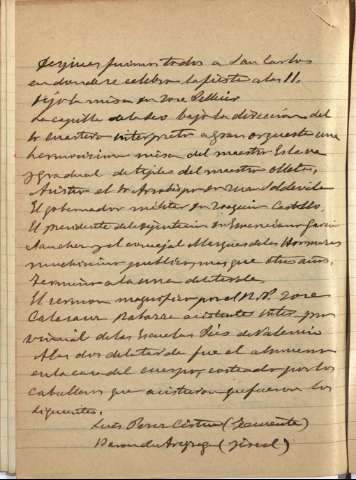 Despues fuimos todos a San Carlos
en donde se celebro la fiesta a las 11.
Dijo la misa Dn Jose Pellicer
La capilla de la Seo bajo la direccion del
Sr maestro interpreto a gran orquesta una
hermosisima misa del maestro Eslava
y gradual de tiples del maestro Olleta,
Asistio el Sr Arzobispo Dn Juan Soldevila
El gobernador militar Dn Joaquin Castillo,
El presidente de la Dn Emerenciano Garcia
Sanchez y el concejal Marques de las Hormazas
muchisimo publico, mas que otros años.
Termino a la una de la tarde.
El sermon magnifico por el R. P. Jose
Calasanz Rabaza asistente inter pro
vincial de las Escuelas Pias de Valencia
A las dos de la tarde fue el almuerzo
en la casa del cuerpo, costeado por los
caballeros que asistieron que fueron los
siguientes.
Luis Perez Cistue (Teniente)
Baron de Areyzaga (Fiscal)